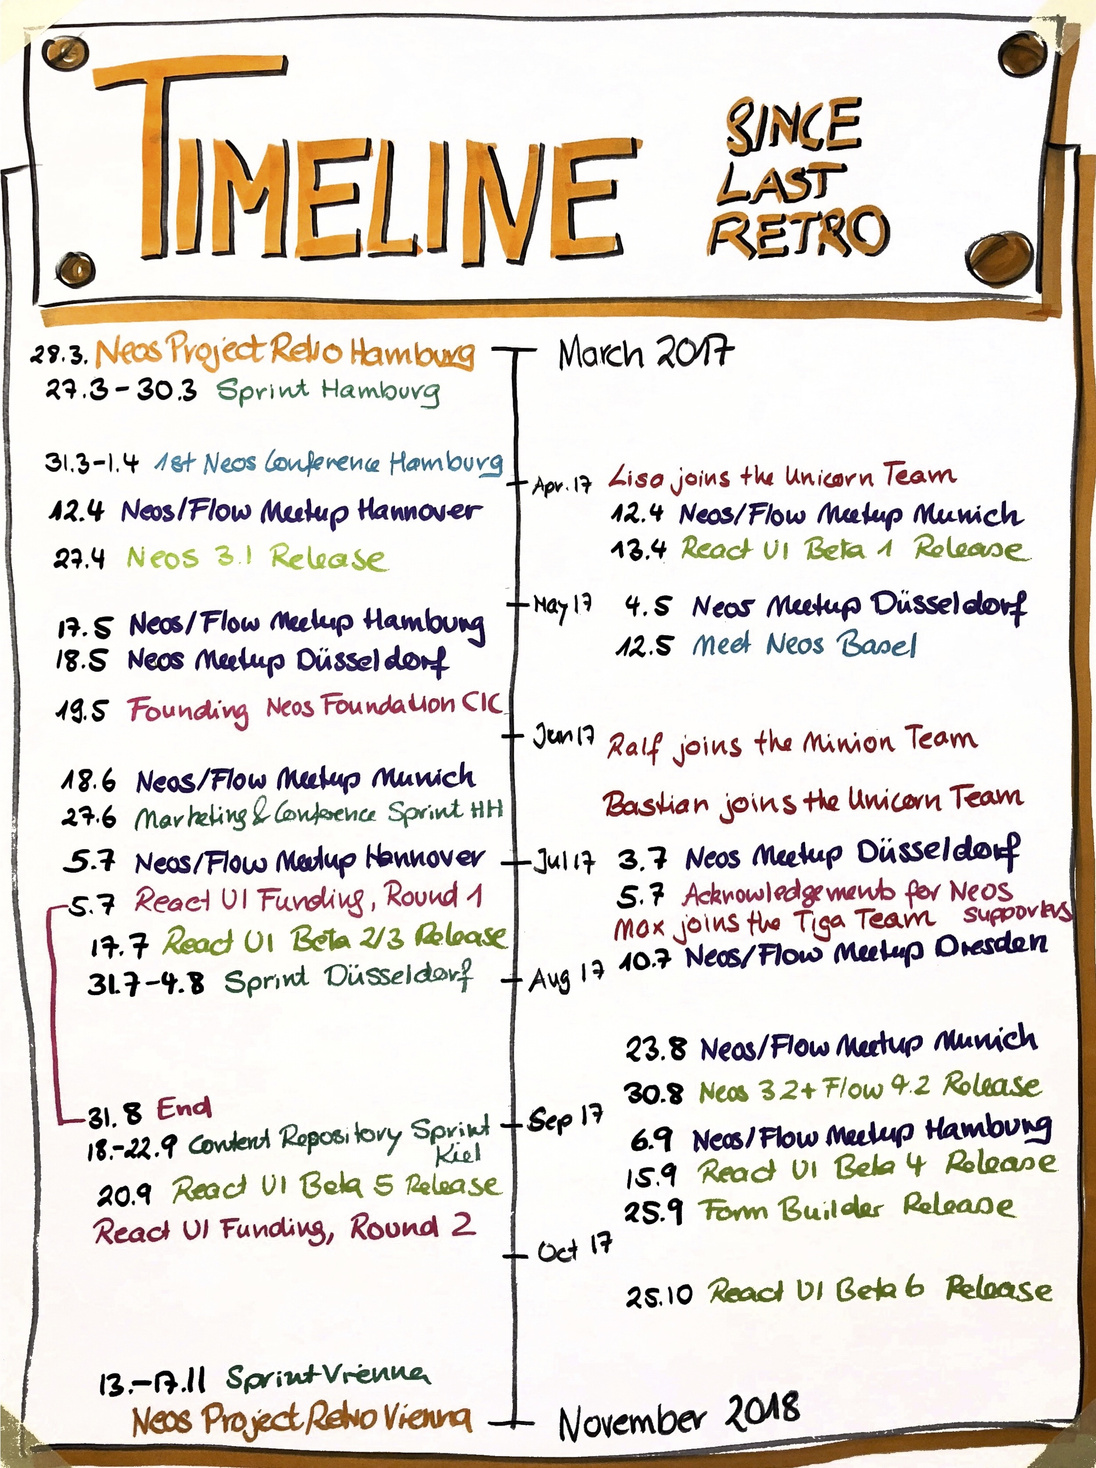 TIMELINE
SINCE
LAST
RETRO
28.3. Neos Project Retro Hamburg
March 2017
27.3-30.3 Sprint Hamburg
31.3-1.4 1st Neos Conference Hamburg
Apr. 17 Lisa joins the Unicorn Team
12.4 Neos/Flow Meetup Hannover
12.4 Neos/Flow Meetup Munich
13.4 React UI Beta 1 Release
27.4 Neos 3.1 Release
May 17 4.5 Neos Meetup Düsseldorf
12.5 Meet Neos Basel
17.5 Neos/Flow Meetup Hamburg
18.5 Neos Meetup Düsseldorf
19.5 Founding Neos Foundation CIC
Jun 17 Ralf joins the Minion Team
18.6 Neos/Flow Meetup Munich
Bastian joins the Unicorn Team
27.6 Marketing & Conference Sprint HH
5.7 Neos/Flow Meetup Hannover
Jul 17 3.7 Neos Meetup Düsseldorf
5.7 React UI Funding, Round 1
5.7 Acknowledgements for Neos
supporters
Max joins the Tiga Team
17.7 React UI Beta 2/3 Release
10.7 Neos/Flow Meetup Dresden
31.7-4.8 Sprint Düsseldorf
Aug 17
23.8 Neos/Flow Meetup Munich
30.8 Neos 3.2 + Flow 4.2 Release
31.8 End
Sep 17
18.-22.9 Content Repository Sprint
Kiel
6.9 Neos/Flow Meetup Hamburg
15.9 React UI Beta 4 Release
20.9 React UI Beta 5 Release
25.9 Form Builder Release
React UI Funding, Round 2
Oct 17
25.10 React UI Beta 6 Release
13.-17.11 Sprint Vienna
Neos Project Retro Vienna
November 2018